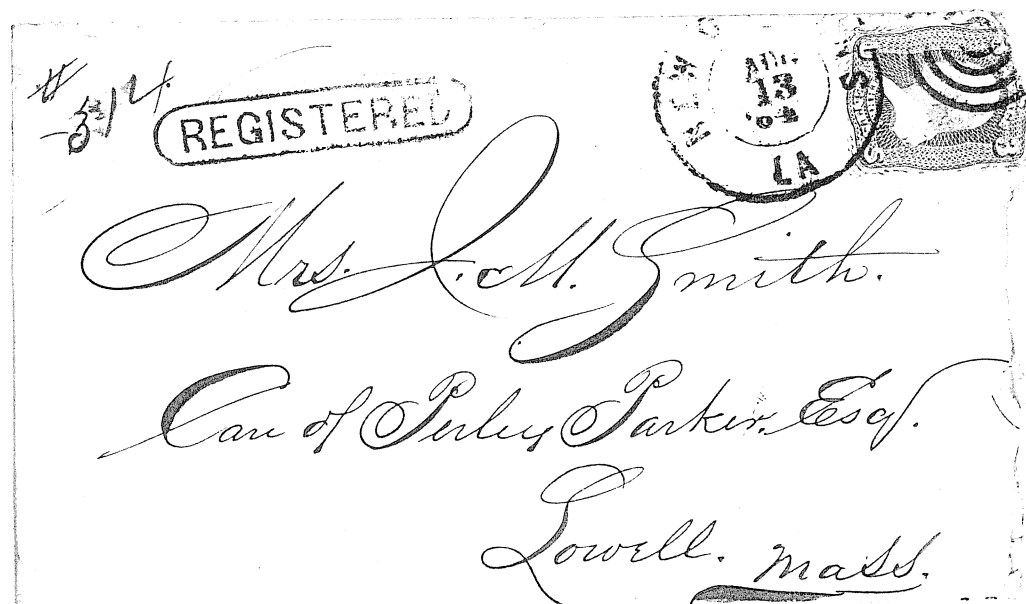 # 314.
REGISTERED
AUG.
13
LA
Mrs. J. M. Smith.
Care of Perley Parker, Esq.
Lowell. Mass.